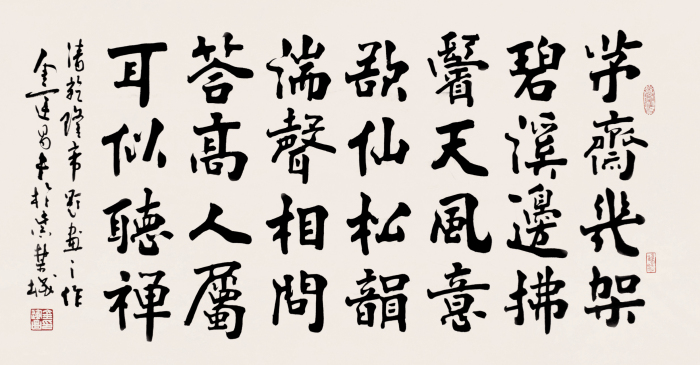 茅齋幾架
碧溪邊拂
鬢天風意
欲仙松韻
湍聲相問
答高人屬
耳似聽禪
清乾隆帝題畫之作
金運昌書於紫禁城